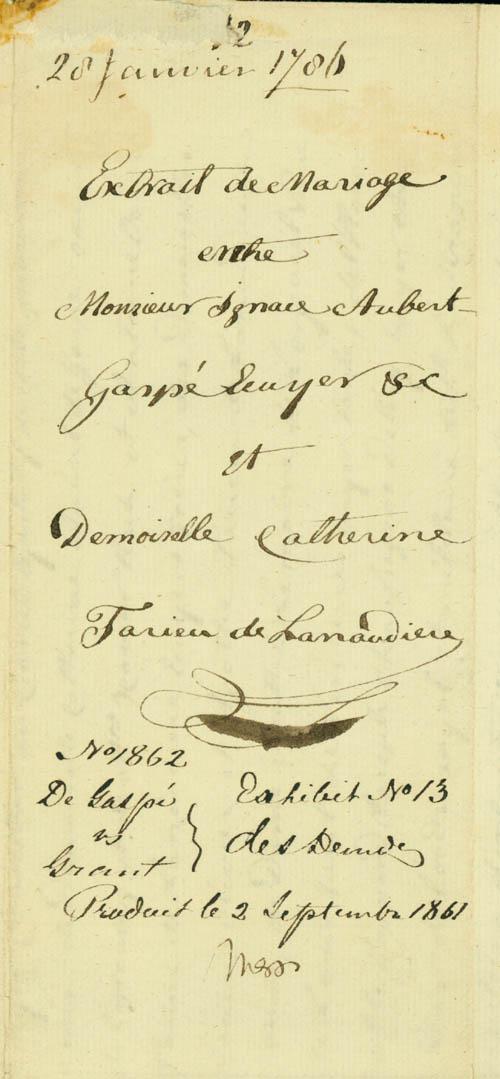 12
28 Janvier 1786
Extrait de Mariage
entre
Monsieur Ignace Aubert
Gaspé Ecuyer &c
et
Demoiselle Catherine
Tarieu de Lanaudiere
No 1862
De Gaspé
vs
Grant
Exhibit No 13
des Demdr
Produit le 2 Septembre 1861